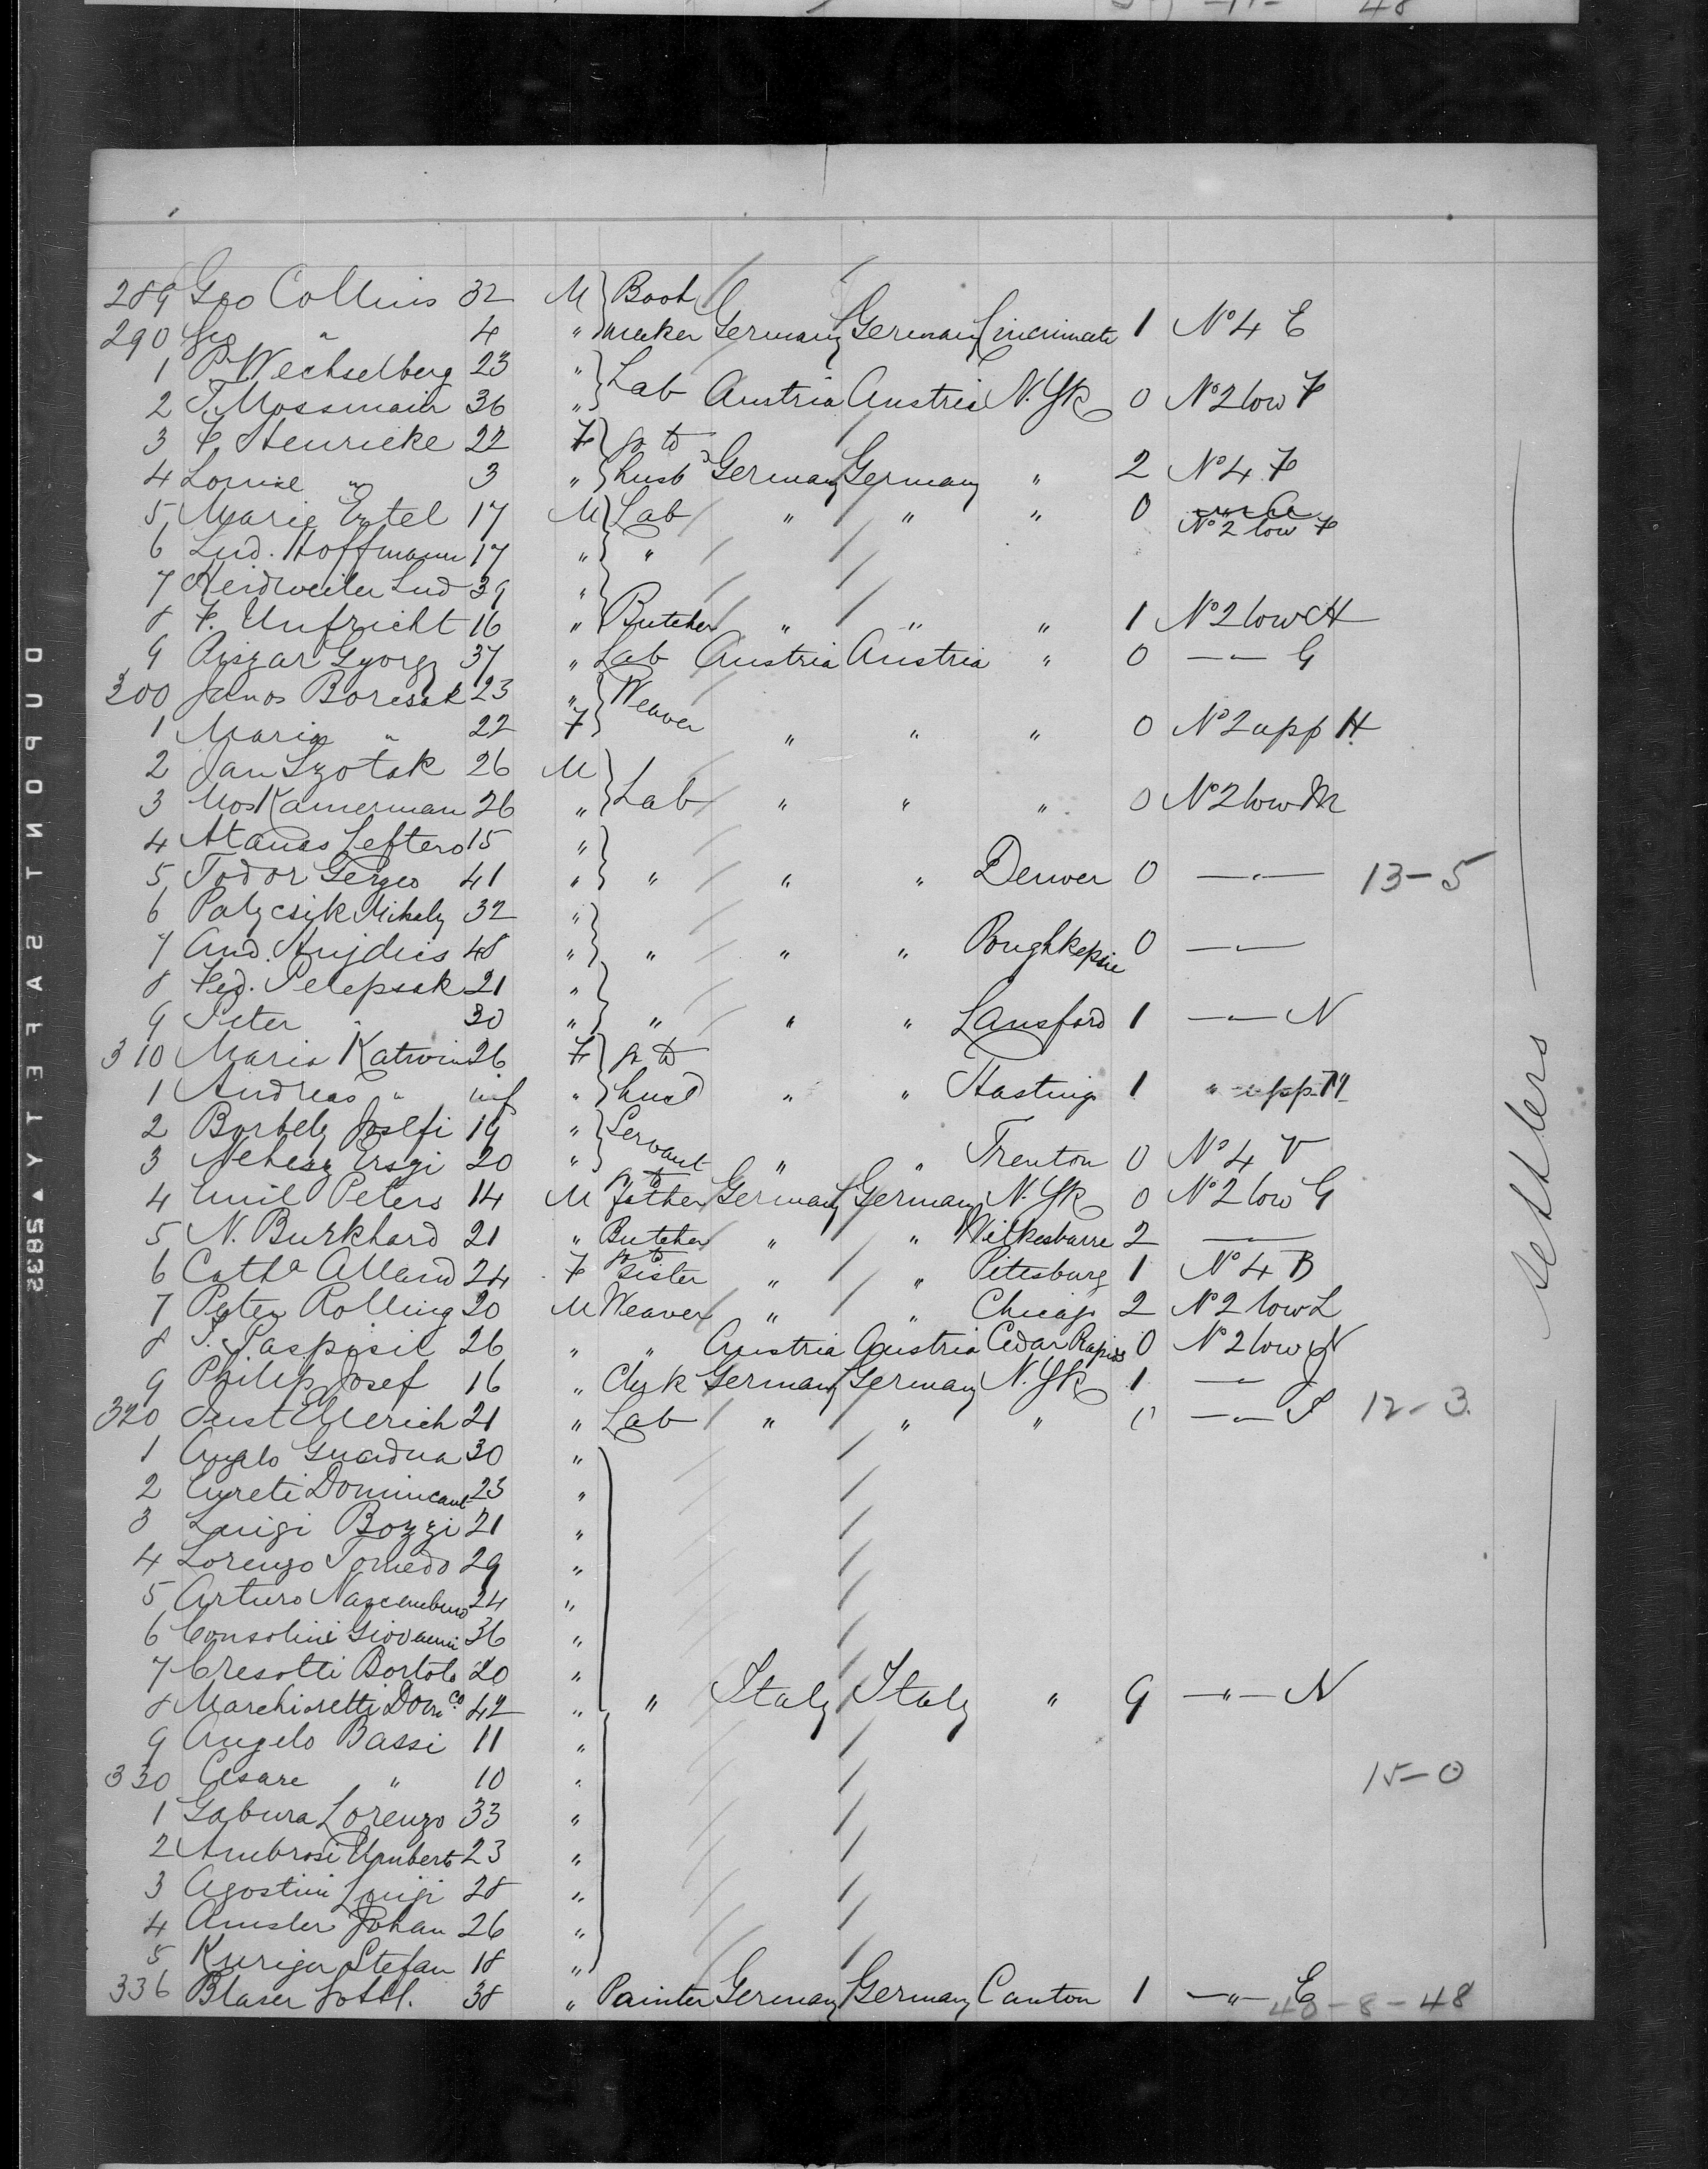 289 Geo Collins 32 M Boot
290 Geo " 4 " maker Germany Germany Cincinnati 1 No 4 E
1 P. Wechselberg 23 "
2 J. Mossmair 36 " Lab Austria Austria N. Yk 0 No 2 low F
3 F. Henricke 22 F go to
4 Louise " 3 " husb Germany Germany " 2 No 4 F
5 Marie Ertel 17 M Lab " " " 0 No 2 low F
6 Lud. Hoffmann 17 " "
7 Heidweiler Lud 39 "
8 F. Unfricht 16 " Butcher " " " 1 No 2 low H
9 Piszar Gyorgy 37 " Lab Austria Austria " 0 — " — G
300 Janos Boresak 23 " Weaver
1 Maria " 22 F " " " 0 No 2 upp H.
2 Jan Szotak 26 M
3 Mos Kamerman 26 " Lab " " " 0 No 2 low M
4 Atanas Leftero 15 "
5 Todor Gergeo 41 " " " " Denver 0 — " — 13-5
6 Palycsik Mihaly 32 "
7 And. Hujdics 48 " " " " Poughkepsie 0 — " —
8 Fed. Pelepsak 21 "
9 Peter " 30 " " " " Lansford 1 — " — N
310 Maria Katwin 26 F go to
1 Andreas " inf " husd " " Hastings 1 " upp H
2 Borbely Josefi 19 " Servant
3 Nehesz Erszi 20 " " " Trenton 0 No 4 V
4 Emil Peters 14 M go to father Germany Germany N. Yk 0 No 2 low G
5 N. Burkhard 21 " Butcher " " Wilkesbarre 2 ——
6 Catha Alland 24 F go to sister " " Pittsburg 1 No 4 B
7 Peter Rolling 20 M Weaver " " Chicago 2 No 2 low L
8 J. Paspisil 26 " " Austria Austria Cedar Rapids 0 No 2 low N
9 Philip Josef 16 " Clerk Germany Germany N. Yk 1 — " —
320 Just Ellerich 21 " Lab " " " 0 — " — 12-3.
1 Angelo Guardna 30 "
2 Cureti 23 "
3 Luigi Bozzi 21 "
4 Lorenzo Tomedo 29 "
5 Arturo 24 "
6 Consolini Giovanni 36 "
7 Cresotti Bortolo 20 "
8 Marchioretti Domco 42 " " Italy Italy " 9 — " — N
9 Angelo Bassi 11 "
330 Cesare " 10 " 15-0
1 Gabura Lorenzo 33 "
2 Ambrosi Umberto 23 "
3 Agostini Luigi 28 "
4 Amsler Johan 26 "
5 Kuriger Stefan 18 "
336 Blaser Gottl. 38 " Painter Germany Germany Canton 1 — " — E
40-8-48
settlers
DUPONT SAFETY ▲ 5832